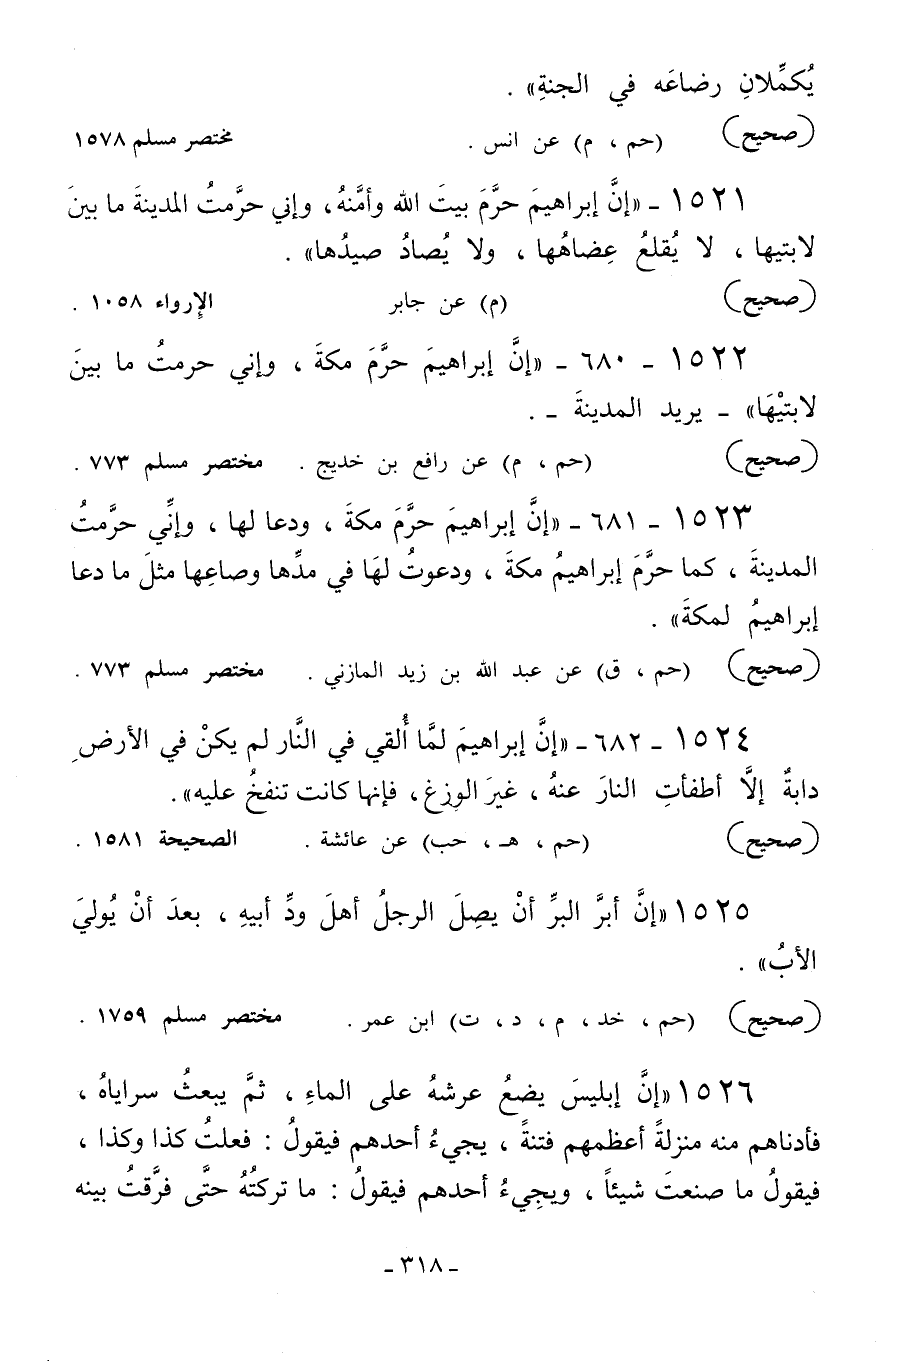 يُكمِّلانِ رضاعَه في الجنةِ» .
(صحيح) (حم ، م) عن انس . مختصر مسلم ١٥٧٨
١٥٢١ ـ «إنَّ إبراهيمَ حرَّمَ بيتَ الله وأمَّنهُ، وإني حرَّمتُ المدينةَ ما بينَ
لابتيها ، لا يُقلعُ عِضاهُها ، ولا يُصادُ صيدُها» .
(صحيح) (م) عن جابر الإرواء ١٠٥٨ .
١٥٢٢ ـ ٦٨٠ ـ «إنَّ إبراهيمَ حرَّمَ مكةَ ، وإني حرمتُ ما بينَ
لابتيْهَا» ـ يريد المدينةَ ـ .
(صحيح) (حم ، م) عن رافع بن خديج . مختصر مسلم ٧٧٣ .
١٥٢٣ ـ ٦٨١ ـ «إنَّ إبراهيمَ حرَّمَ مكةَ ، ودعا لها ، وإنِّي حرَّمتُ
المدينةَ ، كما حرَّمَ إبراهيمُ مكةَ ، ودعوتُ لهَا في مدِّها وصاعِها مثلَ ما دعا
إبراهيمُ لمكةَ» .
(صحيح) (حم ، ق) عن عبد الله بن زيد المازني . مختصر مسلم ٧٧٣ .
١٥٢٤ ـ ٦٨٢ ـ «إنَّ إبراهيمَ لمَّا أُلقي في النَّار لم يكنْ في الأرضِ
دابةٌ إلَّا أطفأتِ النارَ عنهُ ، غيرَ الوزِغ، فإنها كانت تنفخُ عليه».
(صحيح) (حم ، هـ ، حب) عن عائشة . الصحيحة ١٥٨١ .
١٥٢٥ «إنَّ أبرَّ البرِّ أنْ يصِلَ الرجلُ أهلَ ودِّ أبيهِ ، بعدَ أنْ يُوليَ
الأبُ» .
(صحيح) (حم ، خد ، م ، د ، ت) ابن عمر . مختصر مسلم ١٧٥٩ .
١٥٢٦ «إنَّ إبليسَ يضعُ عرشهُ على الماءِ ، ثمَّ يبعثُ سراياهُ ،
فأدناهم منه منزلةً أعظمهم فتنةً ، يجيءُ أحدهم فيقولُ : فعلتُ كذا وكذا ،
فيقولُ ما صنعتَ شيئاً ، ويجِيءُ أحدهم فيقولُ : ما تركتُهُ حتَّى فرَّقتُ بينه
ـ ٣١٨ ـ